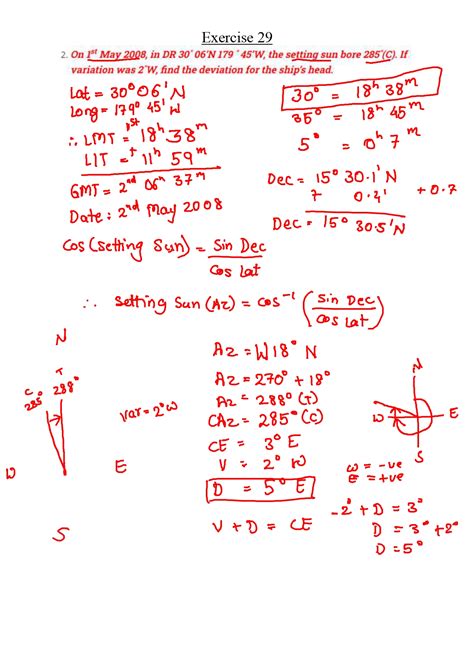 Exercise 29
2. On 1st May 2008, in DR 30° 06'N 179 ° 45'W, the setting sun bore 285°(C). If
variation was 2°W, find the deviation for the ship's head.
Lat = 30° 06' N
Long = 179° 45' W
∴ LMT = 1st 18h 38m
LIT = + 11h 59m
GMT = 2nd 06h 37m
Date : 2nd May 2008
30° = 18h 38m
35° = 18h 45m
5° = 0h 7m
Dec = 15° 30.1' N
+ 0.7
Dec = 15° 30.5' N
Cos (Setting Sun) = Sin Dec
Cos Lat
∴ Setting Sun (Az) = Cos-1 ( Sin Dec
Cos Lat )
Az = W18° N
Az = 270° + 18°
Az = 288° (T)
CAz = 285° (C)
CE = 3° E
V = 2° W
D = 5° E
V + D = CE
N
C
285°
T
288°
Var = 2°W
W
E
S
N
W
E
S
W = -ve
E = +ve
-2° + D = 3°
D = 3° + 2°
D = 5°